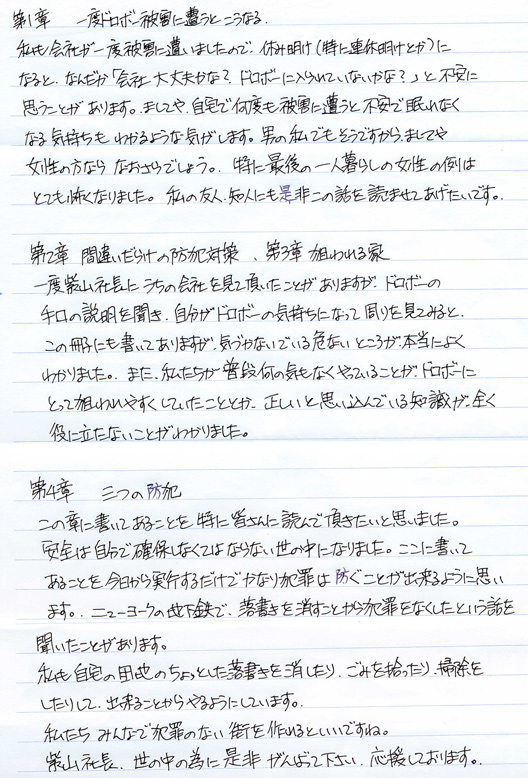 第1章　一度ドロボー被害に遭うとこうなる.
私も会社が一度被害に遭いましたので、休み明け(特に連休明けとか)に
なると、なんだか「会社大丈夫かな？ドロボーに入られていないかな？」と不安に
思うことがあります。ましてや、自宅で何度も被害に遭うと不安で眠れなく
なる気持ちもわかるような気がします。男の私でもそうですから、ましてや
女性の方ならなおさらでしょう。特に最後の一人暮らしの女性の例は
とても怖くなりました。私の友人、知人にも是非この話を読ませてあげたいです。
第2章 間違いだらけの防犯対策 、第3章 狙われる家
一度柴山社長にうちの会社を見て頂いたことがありますが、ドロボーの
手口の説明を聞き、自分がドロボーの気持ちになって周りを見てみると、
この冊子にも書いてありますが、気づかないでいる危ないところが、本当によく
わかりました。また、私たちが普段何の気もなくやっていることが、ドロボーに
とって狙われやすくしていたこととか、正しいと思い込んでいる知識が、全く
役に立たないことがわかりました。
第4章　三つの防犯
この章に書いてあることを特に皆さんに読んで頂きたいと思いました。
安全は自分で確保しなくてはならない世の中になりました。ここに書いて
あることを今日から実行するだけでかなり犯罪は防ぐことが出来るように思い
ます。ニューヨークの地下鉄で、落書きを消すことから犯罪をなくしたという話を
聞いたことがあります。
私も自宅の団地のちょっとした落書きを消したり、ごみを拾ったり、掃除を
したりして、出来ることからやるようにしています。
私たちみんなで犯罪のない街を作れるといいですね。
柴山社長、世の中の為に是非がんばって下さい、応援しております。